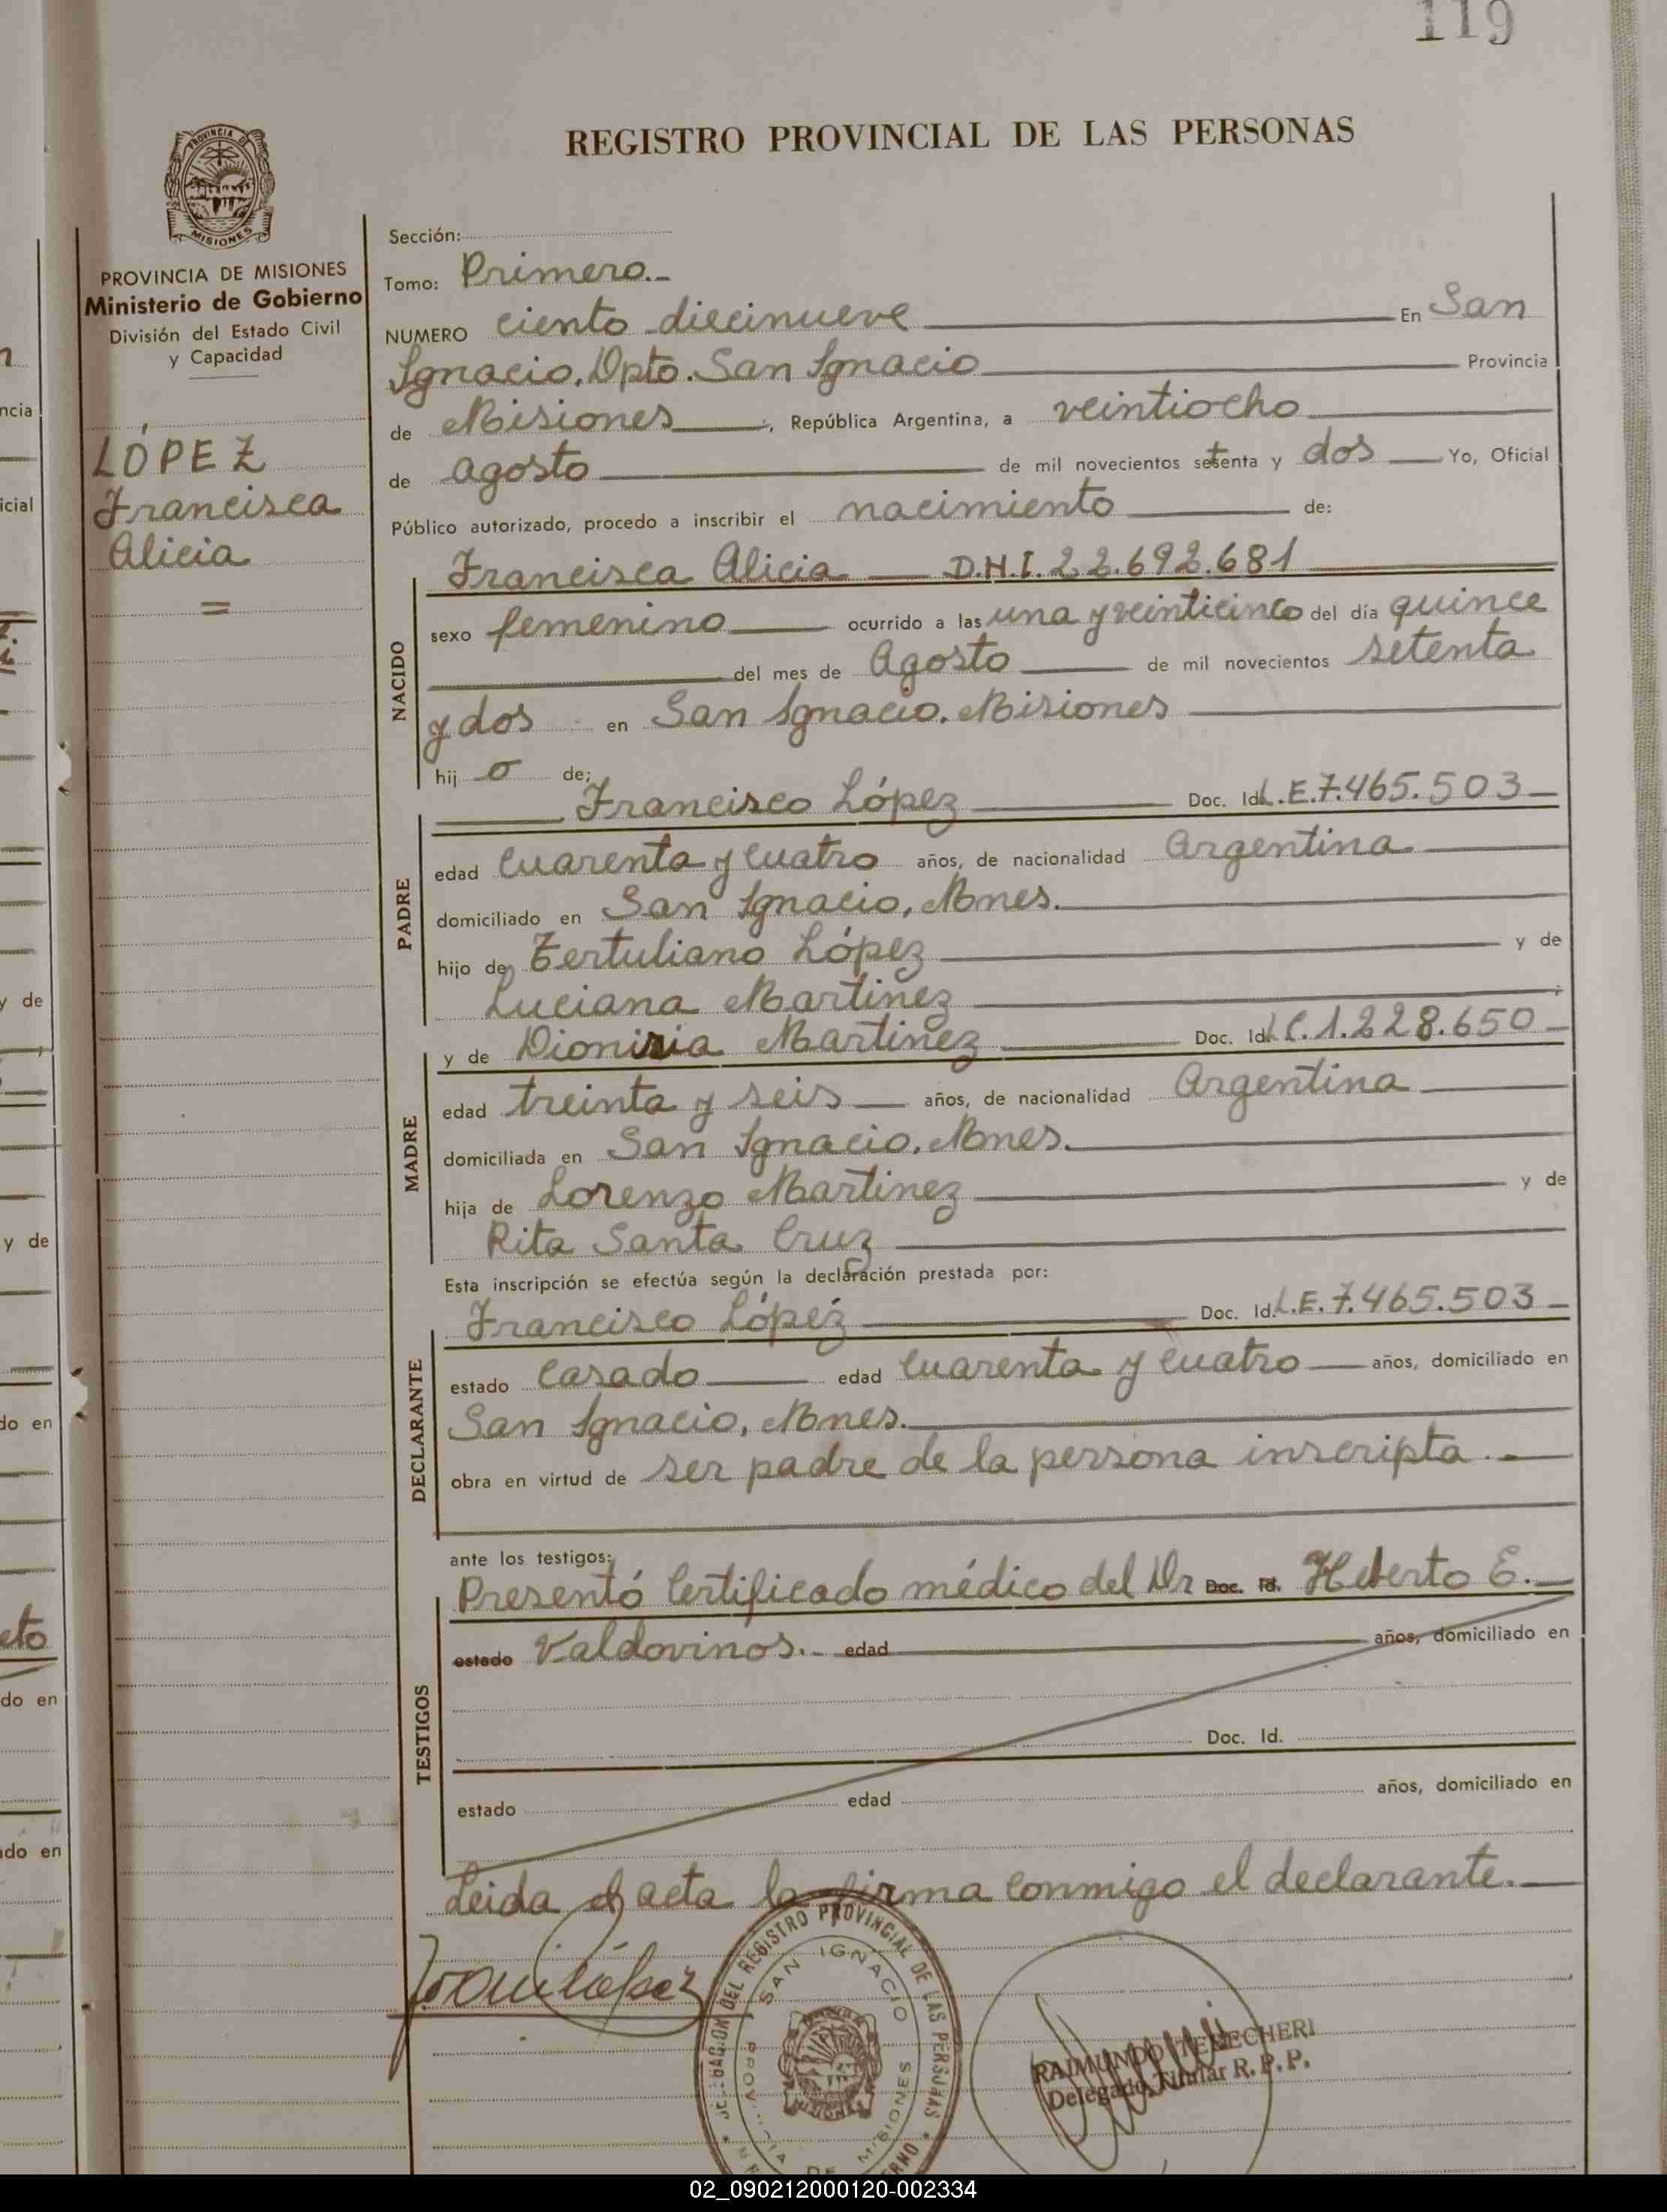 119
REGISTRO PROVINCIAL DE LAS PERSONAS
PROVINCIA DE MISIONES
Ministerio de Gobierno
División del Estado Civil
y Capacidad
LÓPEZ
Francisca
Alicia
=
Sección:
Tomo: Primero.-
NUMERO ciento diecinueve En San
Ignacio, Dpto. San Ignacio Provincia
de Misiones, República Argentina, a veintiocho
de agosto de mil novecientos setenta y dos Yo, Oficial
Público autorizado, procedo a inscribir el nacimiento de:
Francisca Alicia D.N.I. 22.692.681
NACIDO
sexo femenino ocurrido a las una y veinticinco del día quince
del mes de Agosto de mil novecientos setenta
y dos en San Ignacio, Misiones
hij o de;
Francisco López Doc. Id. L.E. 7.465.503
PADRE
edad cuarenta y cuatro años, de nacionalidad Argentina
domiciliado en San Ignacio, Mnes.
hijo de Tertuliano López y de
Luciana Martinez
y de Dionisia Martinez Doc. Id. L.C. 1.228.650
MADRE
edad treinta y seis años, de nacionalidad Argentina
domiciliada en San Ignacio, Mnes.
hija de Lorenzo Martinez y de
Rita Santa Cruz
Esta inscripción se efectúa según la declaración prestada por:
Francisco López Doc. Id. L.E. 7.465.503
DECLARANTE
estado casado edad cuarenta y cuatro años, domiciliado en
San Ignacio, Mnes.
obra en virtud de ser padre de la persona inscripta.-
ante los testigos:
Presentó Certificado médico del Dr Doc. Id. Heberto E.
estado Valdovinos.- edad años, domiciliado en
TESTIGOS
Doc. Id.
estado edad años, domiciliado en
Leida el acta la firma conmigo el declarante.
DELEGACION DEL REGISTRO PROVINCIAL DE LAS PERSONAS
SAN IGNACIO
PROVINCIA DE MISIONES
RAIMUNDO
Delegado Titular R. P. P.
02_090212000120-002334